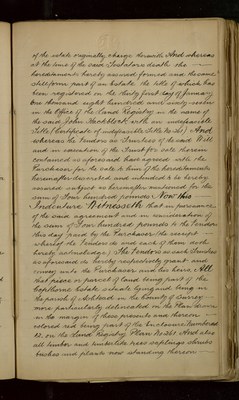 of the estate originally charged therewith And whereas
at the time of the said Testators death the
hereditaments hereby assured formed and the same
still form part of an Estate the title of which has
been registered on the thirty first day of January
One thousand eight hundred and sixty seven
in the Office of the Land Registry in the name of
the said John Shackcloth with an indefeasible
Title (Certificate of indefeasible Title No. ) And
whereas the Vendors as Trustees of the said Will
and in execution of the Trust for sale therein
contained as aforesaid have agreed with the
Purchaser for the sale to him of the hereditaments
hereinafter described and intended to be hereby
assured subject as hereinafter mentioned for the
sum of Four hundred pounds Now this
Indenture Witnesseth that in pursuance
of the said agreement and in consideration of
the sum of Four hundred pounds to the Vendors
this day paid by the Purchaser (the receipt
whereof the Vendors do and each of them doth
hereby acknowledge) The Vendors as such Trustees
as aforesaid do hereby respectively grant and
convey unto the Purchaser and his heirs All
that piece or parcel of land being part of the
Copthorne Estate situate lying and being in
the parish of Ashtead in the County of Surrey
more particularly delineated in the Plan drawn
in the margin of these presents and thereon
colored red being part of the Enclosure Numbered
42 on the Land Registry Plan No. 361 And also
all timber and timberlike trees saplings shrubs
bushes and plants now standing thereon